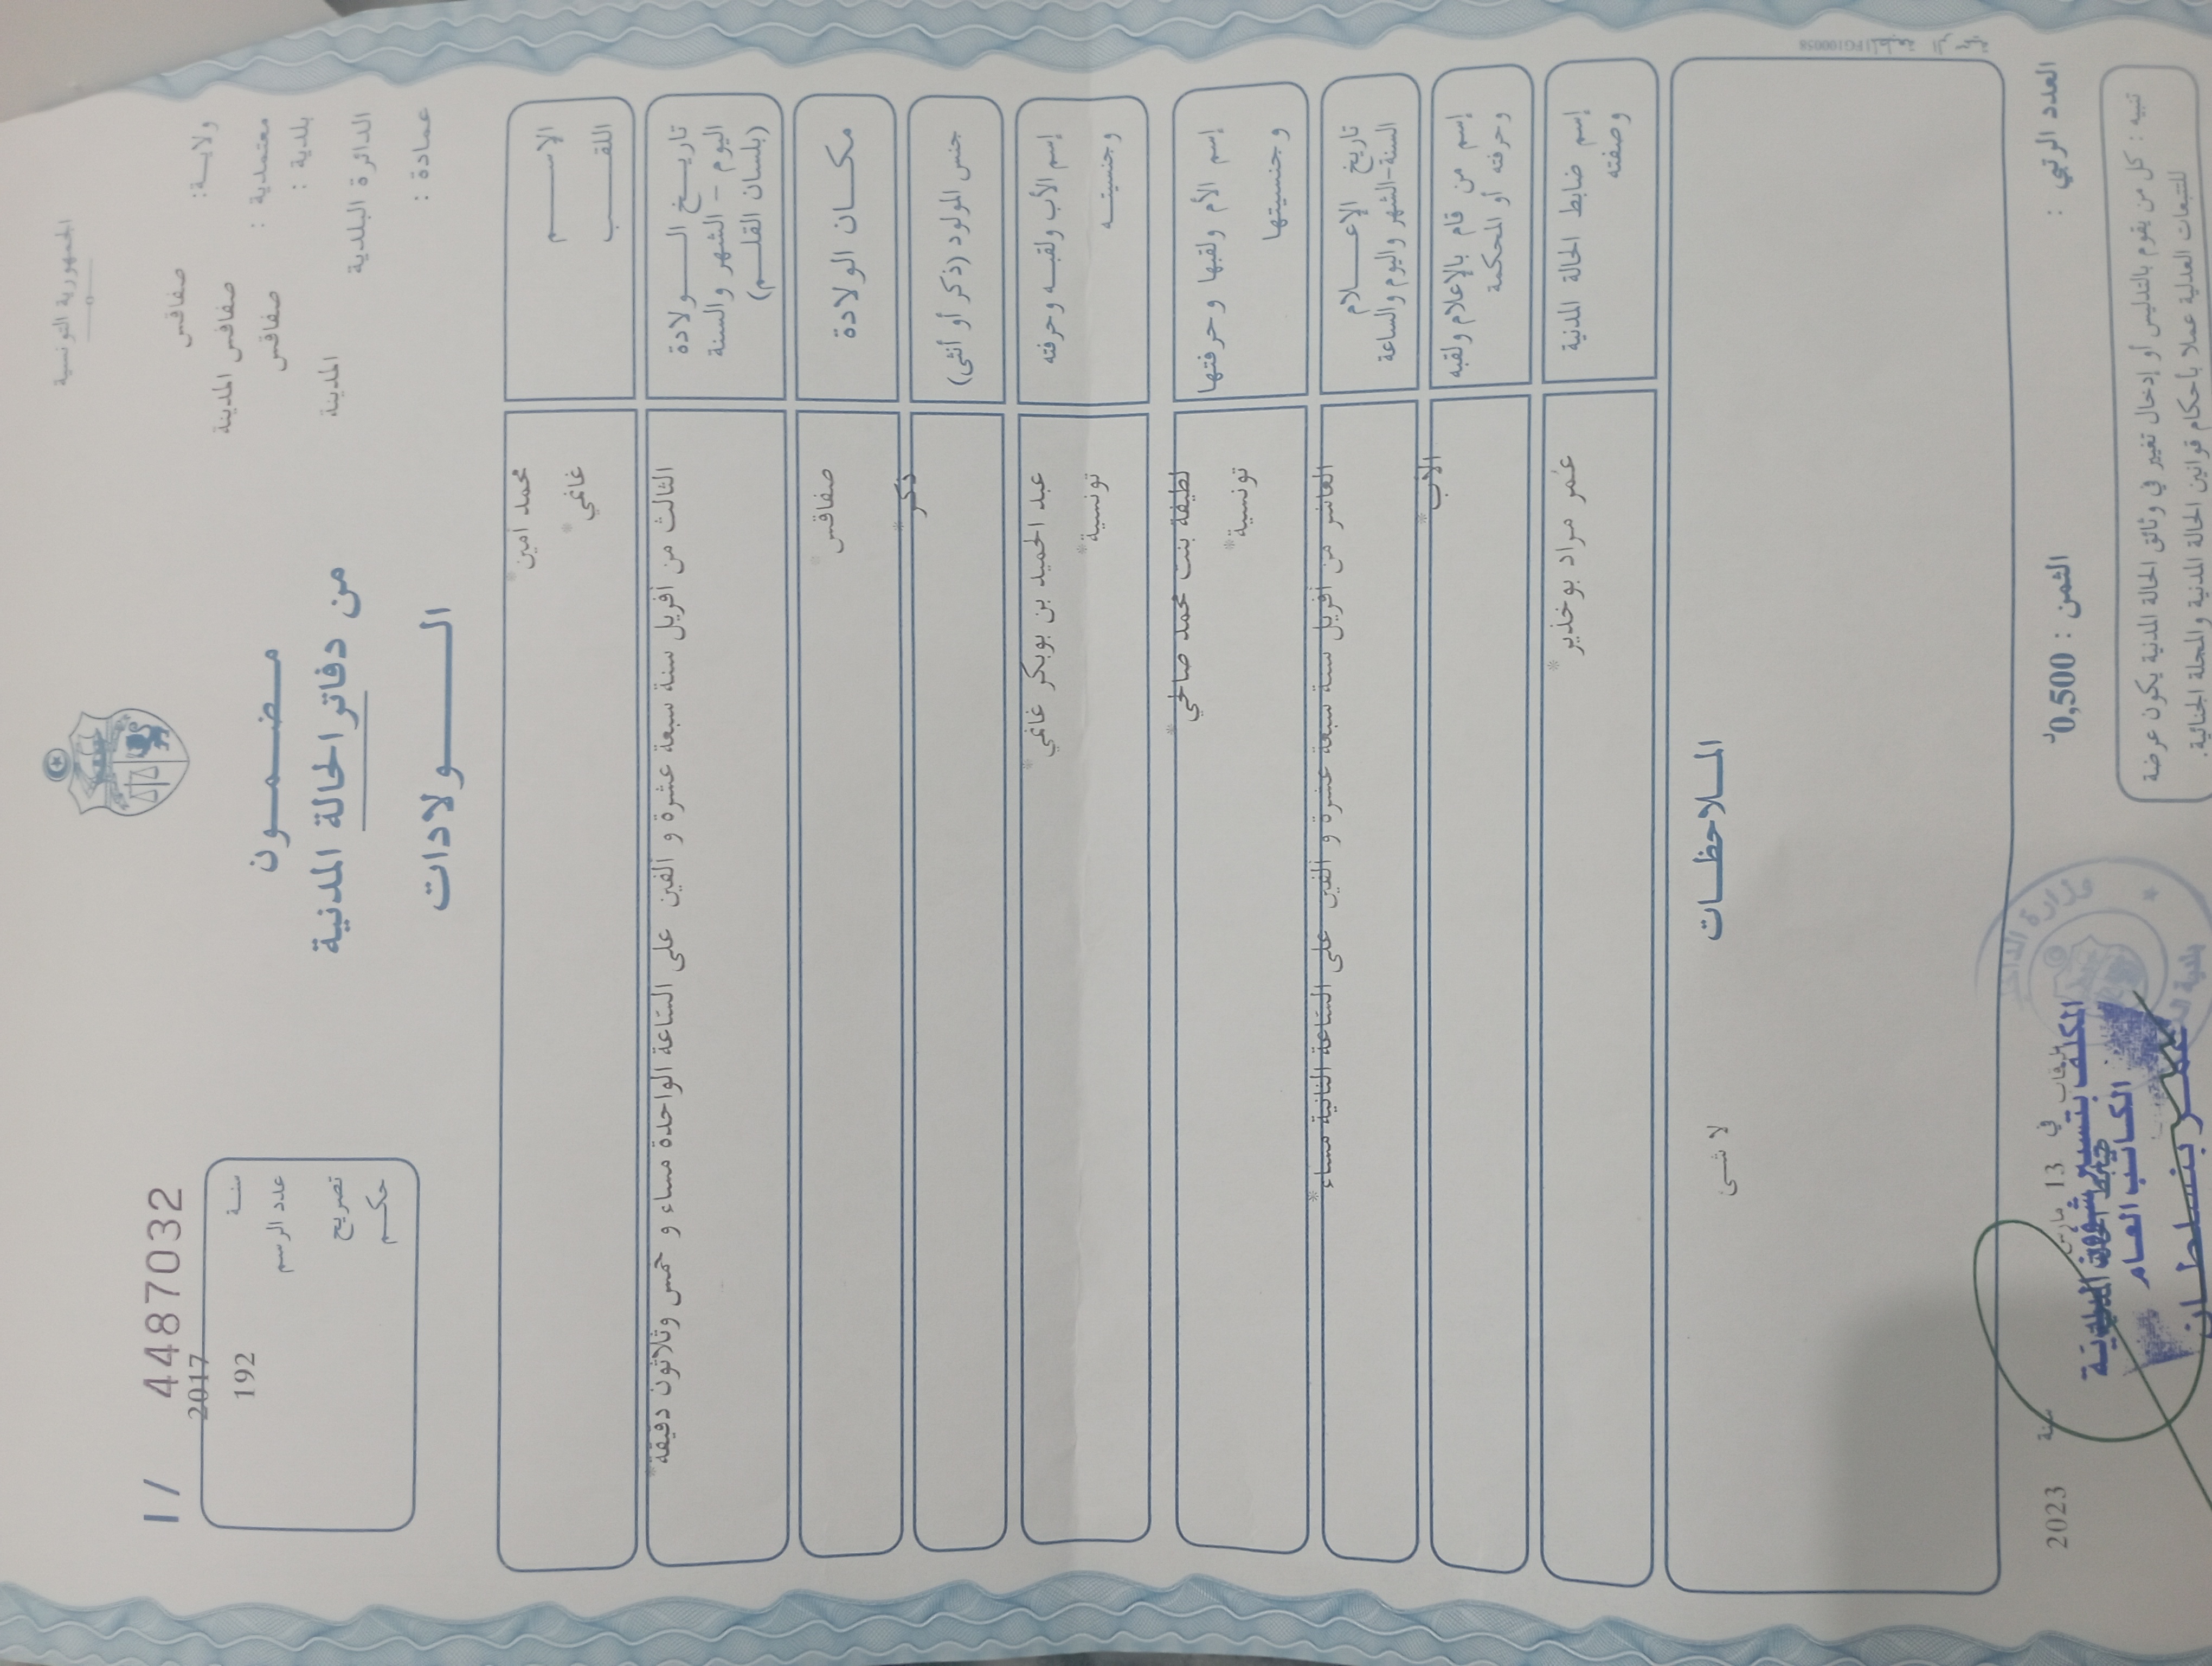 الجمهورية التونسية
ولايـــة: صفاقس
معتمدية : صفاقس المدينة
بلدية : صفاقس
الدائرة البلدية المدينة
عمادة :
مـــضـــمـــون
من دفاتر الحالة المدنية
الـــــولادات
I / 4487032
سنـــة 2017
عدد الرسم 192
تصريح
حكـــم
الإســـــم محمد أمين *
اللقـــــب غانمي *
تاريـــخ الـــــولادة
اليوم - الشهر والسنة
(بلسان القلـــم)
الثالث من أفريل سنة سبعة عشرة و ألفين على الساعة الواحدة مساء و خمس وثلاثون دقيقة *
مكـــان الولادة صفاقس *
جنس المولود (ذكر أو أنثى) ذكر *
إسم الأب ولقبـــه وحرفته عبد الحميد بن بوبكر غانمي *
وجنسيتـــه تونسية *
إسم الأم ولقبها وحرفتها لطيفة بنت محمد صالحي *
وجنسيتها تونسية *
تاريخ الإعـــــلام
السنة-الشهر واليوم والساعة
العاشر من أفريل سنة سبعة عشرة و ألفين على الساعة الثانية مساء *
إسم من قام بالإعلام ولقبه الأب *
وحرفته أو المحكمة
إسم ضابط الحالة المدنية عمر مراد بوخذير *
وصفته
المـــلاحظـــات
لا شئ
المطبعة الرسمية PG100058
العدد الرتبي :
الثمن : 0,500 د
في 13 مارس سنة 2023
المكلف بتسيير شؤون البلدية
ضابط الحالة المدنية
الكاتب العام
عمر بنسلطان
وزارة الداخلية
تنبيه : كل من يقوم بالتدليس أو إدخال تغيير في وثائق الحالة المدنية يكون عرضة
للتتبعات العدلية عملا بأحكام قوانين الحالة المدنية والمجلة الجنائية.